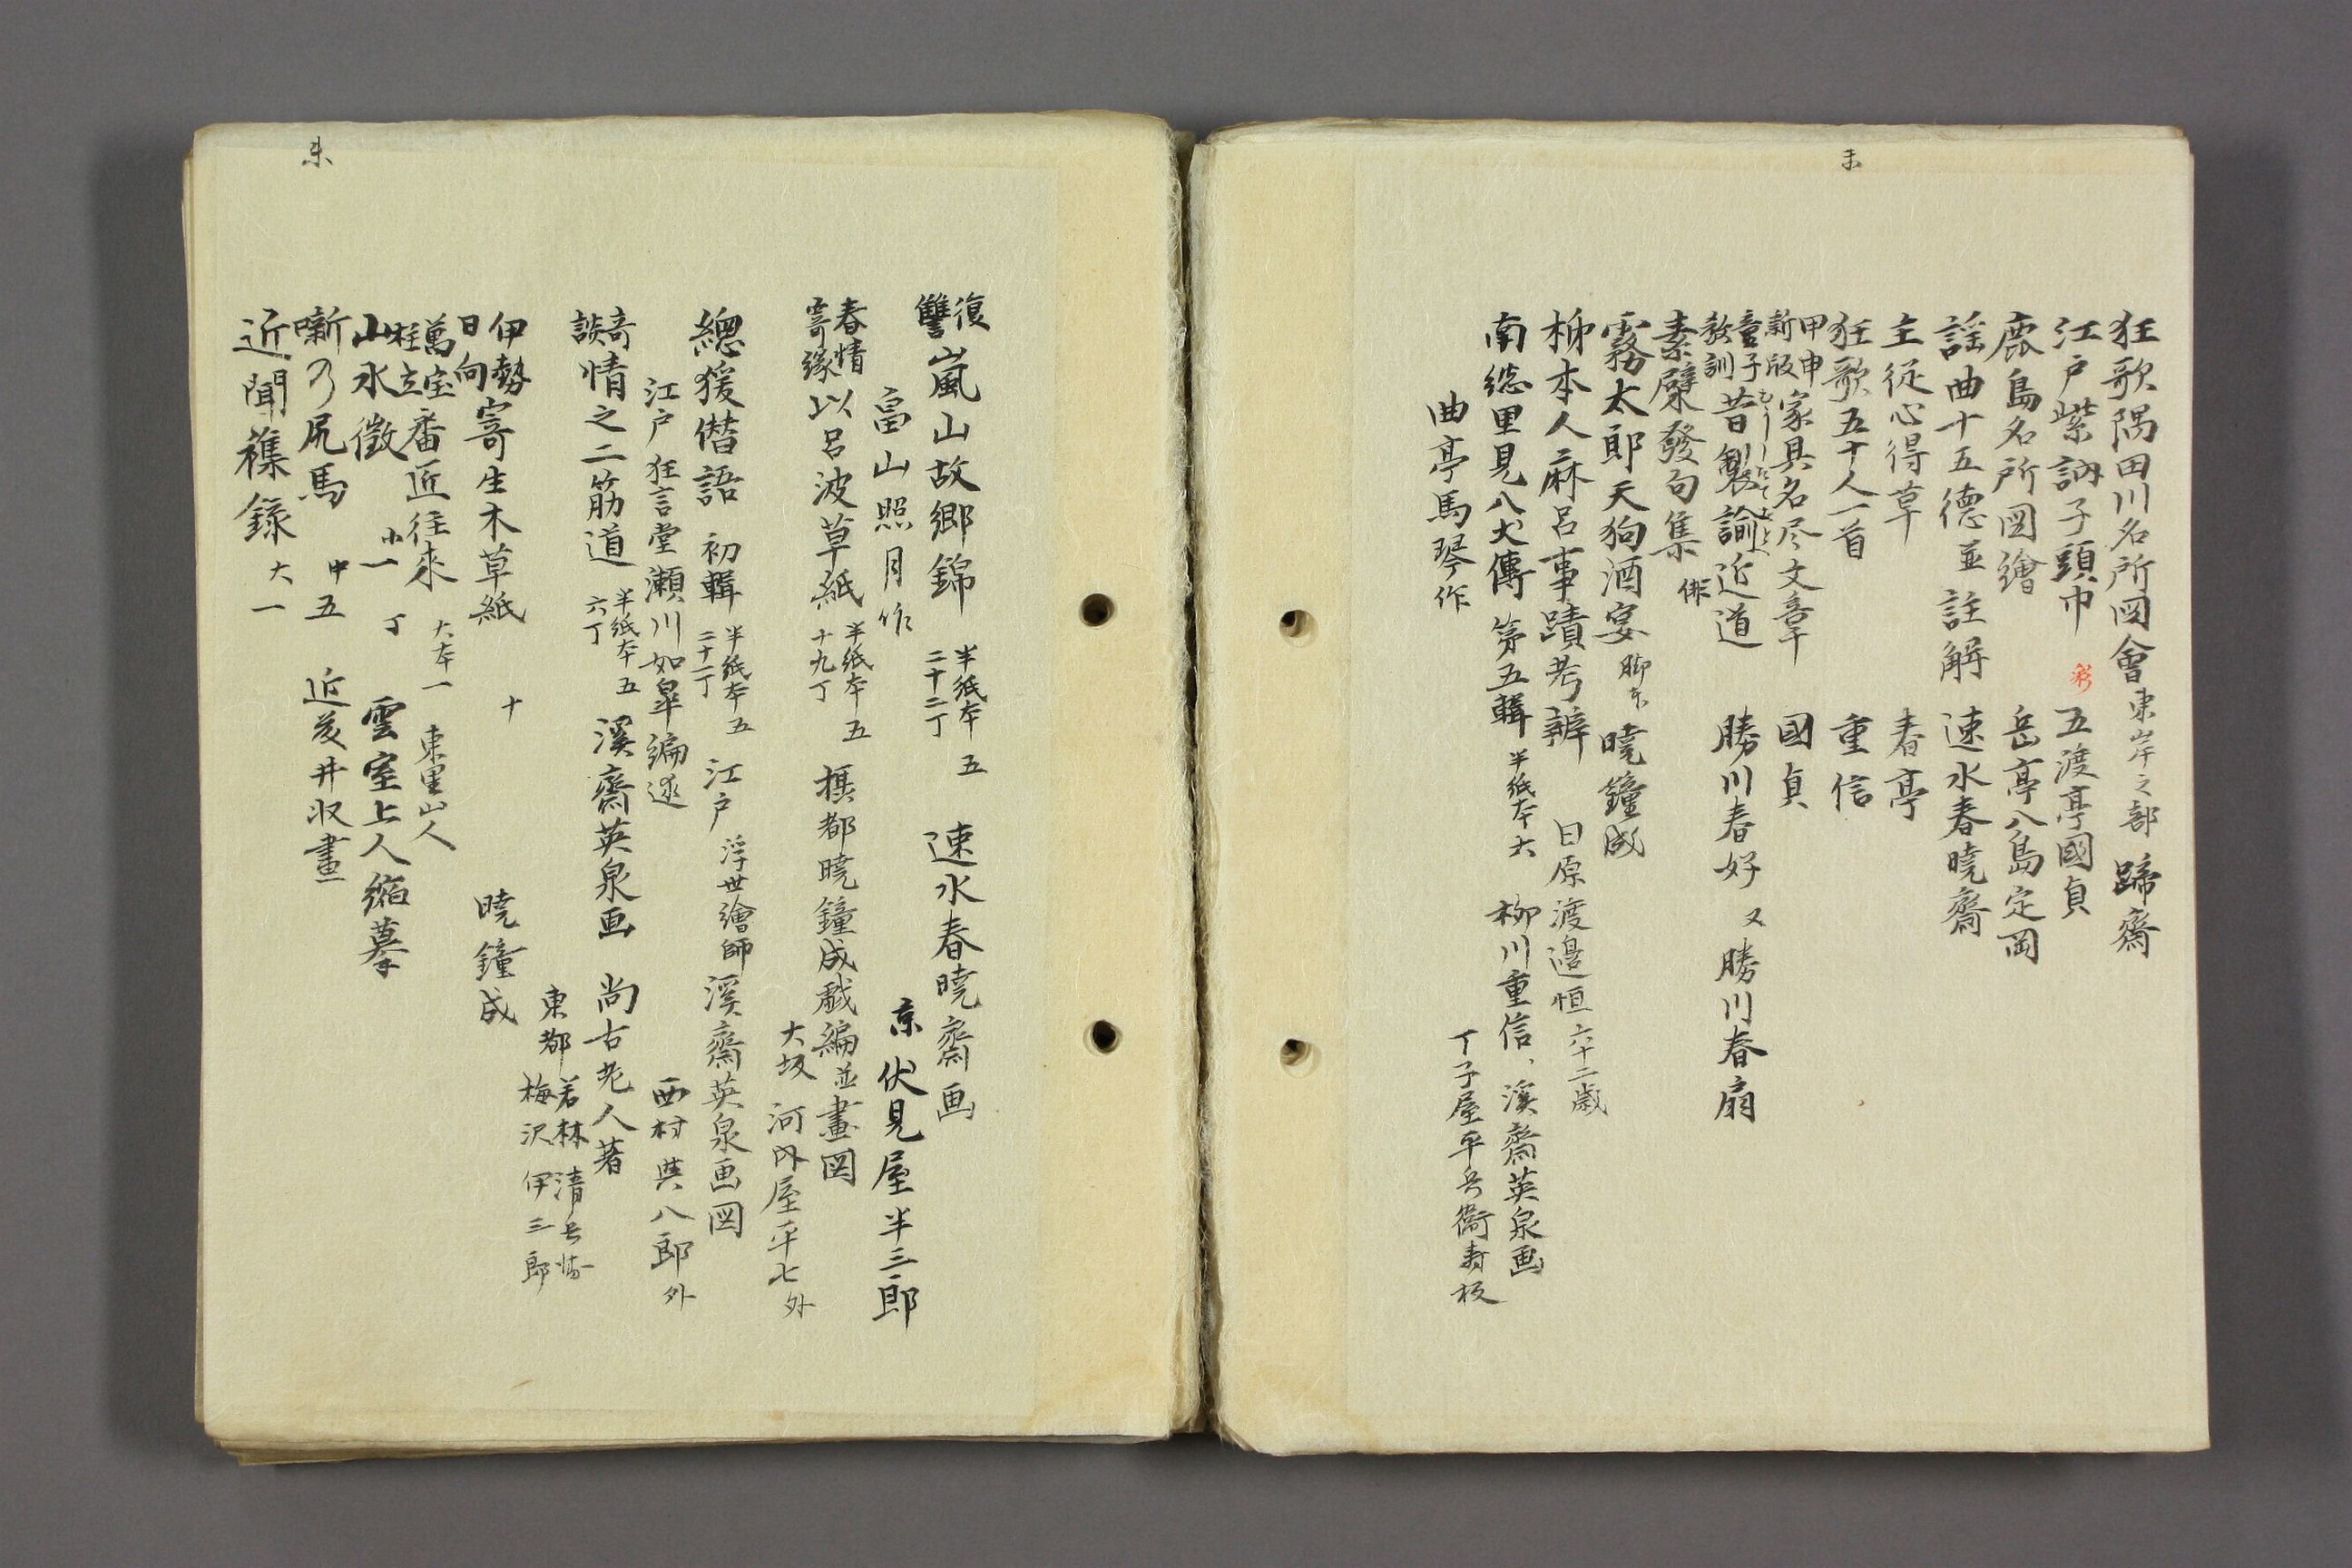 狂歌隅田川名所図會 東岸之部 蹄齋
江戸紫訥子頭巾 五渡亭國貞
鹿島名所図繪 岳亭八島定岡
謡曲十五德並註解 速水春暁齋
主従心得草 春亭
狂歌五十人一首 重信
甲申新版 家具名尽文章 國貞
童子教訓 昔製諭近道 勝川春好 又勝川春扇
素檗發句集 俳
霧太郎天狗酒宴 脚本 暁鐘成
柿本人麻呂事蹟考辨 日原渡邉恒 六十二歳
南総里見八犬傳 第五輯 半紙本六 柳川重信、溪齋英泉画
曲亭馬琴作 丁子屋平兵衛寿板
未
復讐 嵐山故郷錦 半紙本五 二十二丁 速水春暁齋画
畠山照月作 京 伏見屋半三郎
春情寄縁 以呂波草紙 半紙本五 十九丁 摂都暁鐘成戯編並畫図
大坂 河内屋平七外
總猨僣語 初輯 半紙本五 二十丁 江戸 浮世繪師溪齋英泉画図
江戸狂言堂瀬川如皐編述 西村與八郎外
奇談 情之二筋道 半紙本五 六丁 溪齋英泉画 尚古老人著
東都 若林清兵衛 梅沢伊三郎
伊勢日向 寄生木草紙 十 暁鐘成
萬宝柱立 番匠往來 大本一 東里山人
山水徴 小一 丁 雲室上人縮摹
噺乃尻馬 中五 近菱井収畫
近聞襍錄 大一
未